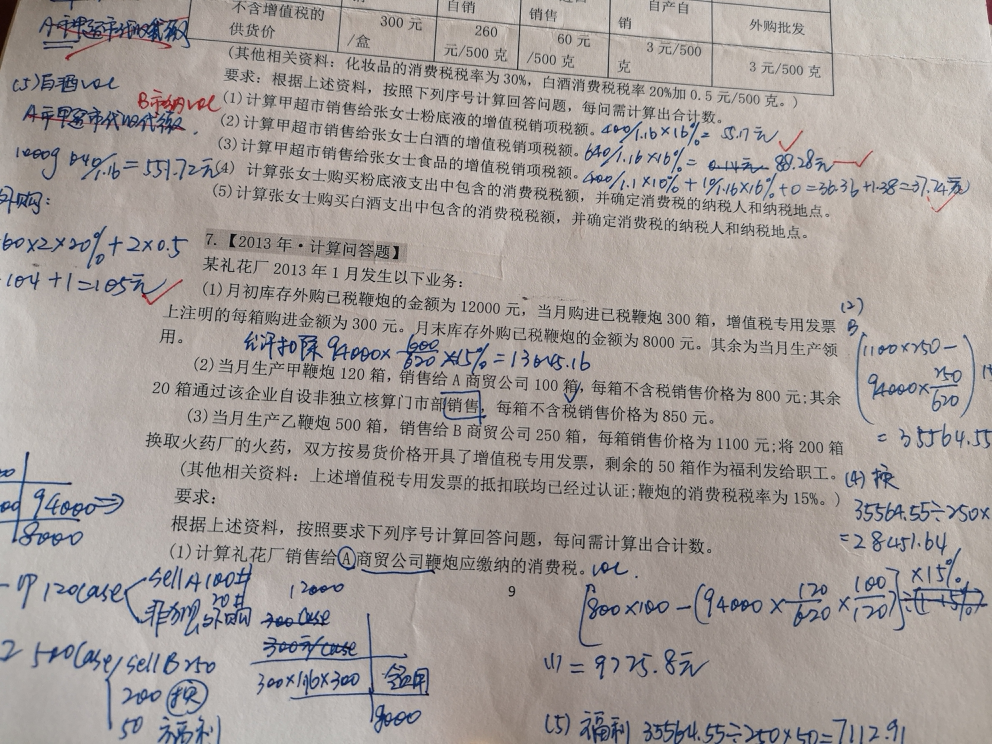 不含增值税的
供货价
300 元
/盒
自销
260
元/500 克
销售
60 元
/500 克
自产自
销
3 元/500
克
外购批发
3 元/500 克
(其他相关资料：化妆品的消费税税率为30%，白酒消费税税率20%加0.5 元/500克。)
要求：根据上述资料，按照下列序号计算回答问题，每问需计算出合计数。
(5)白酒vol
B市纳vol
(1)计算甲超市销售给张女士粉底液的增值税销项税额。400/1.16×16%=55.17元
(2)计算甲超市销售给张女士白酒的增值税销项税额。640/1.16×16%= 88.28元
(3)计算甲超市销售给张女士食品的增值税销项税额。400/1.1×10%+10/1.16×16%+0=36.36+1.38=37.74元
1000g 640/1.16=551.72元
(4) 计算张女士购买粉底液支出中包含的消费税税额，并确定消费税的纳税人和纳税地点。
(5)计算张女士购买白酒支出中包含的消费税税额，并确定消费税的纳税人和纳税地点。
外购：
60×2×20%+2×0.5
104+1=105元
7.【2013 年·计算问答题】
某礼花厂 2013 年 1 月发生以下业务：
(1)月初库存外购已税鞭炮的金额为12000 元，当月购进已税鞭炮300 箱，增值税专用发票
上注明的每箱购进金额为 300 元。月末库存外购已税鞭炮的金额为 8000 元。其余为当月生产领
用。
允许扣除 94000×600/620×15%=13645.16
(2)当月生产甲鞭炮 120 箱，销售给 A 商贸公司 100 箱，每箱不含税销售价格为 800 元;其余
20 箱通过该企业自设非独立核算门市部销售，每箱不含税销售价格为 850 元。
(3)当月生产乙鞭炮 500 箱，销售给 B 商贸公司 250 箱，每箱销售价格为 1100 元;将 200 箱
换取火药厂的火药，双方按易货价格开具了增值税专用发票，剩余的 50 箱作为福利发给职工。
(其他相关资料：上述增值税专用发票的抵扣联均已经过认证;鞭炮的消费税税率为 15%。)
要求：
根据上述资料，按照要求下列序号计算回答问题，每问需计算出合计数。
(1)计算礼花厂销售给 A 商贸公司鞭炮应缴纳的消费税。vol
9
(2)
B
1100×250-
94000×250/620
=35564.55
(4) 换
35564.55÷250×
=28451.64
94000
8000
甲 120case
sell A 100#
20#
500case
sell B 250
200 换
50 福利
12000
300 case
300元/case
300×1.16×300
领用
8000
[800×100-(94000×120/620×100/120)] ×15%
(1)=9725.8元
(5) 福利 35564.55÷250×50=7112.91